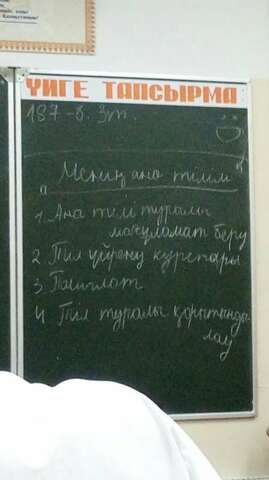 ҮЙГЕ ТАПСЫРМА
187-б. 3т.
"Менің ана тілім"
1. Ана тілі туралы
мағұломат беру
2. Тіл үйрену курстары
3
4 Тіл туралы қорытынды
лау